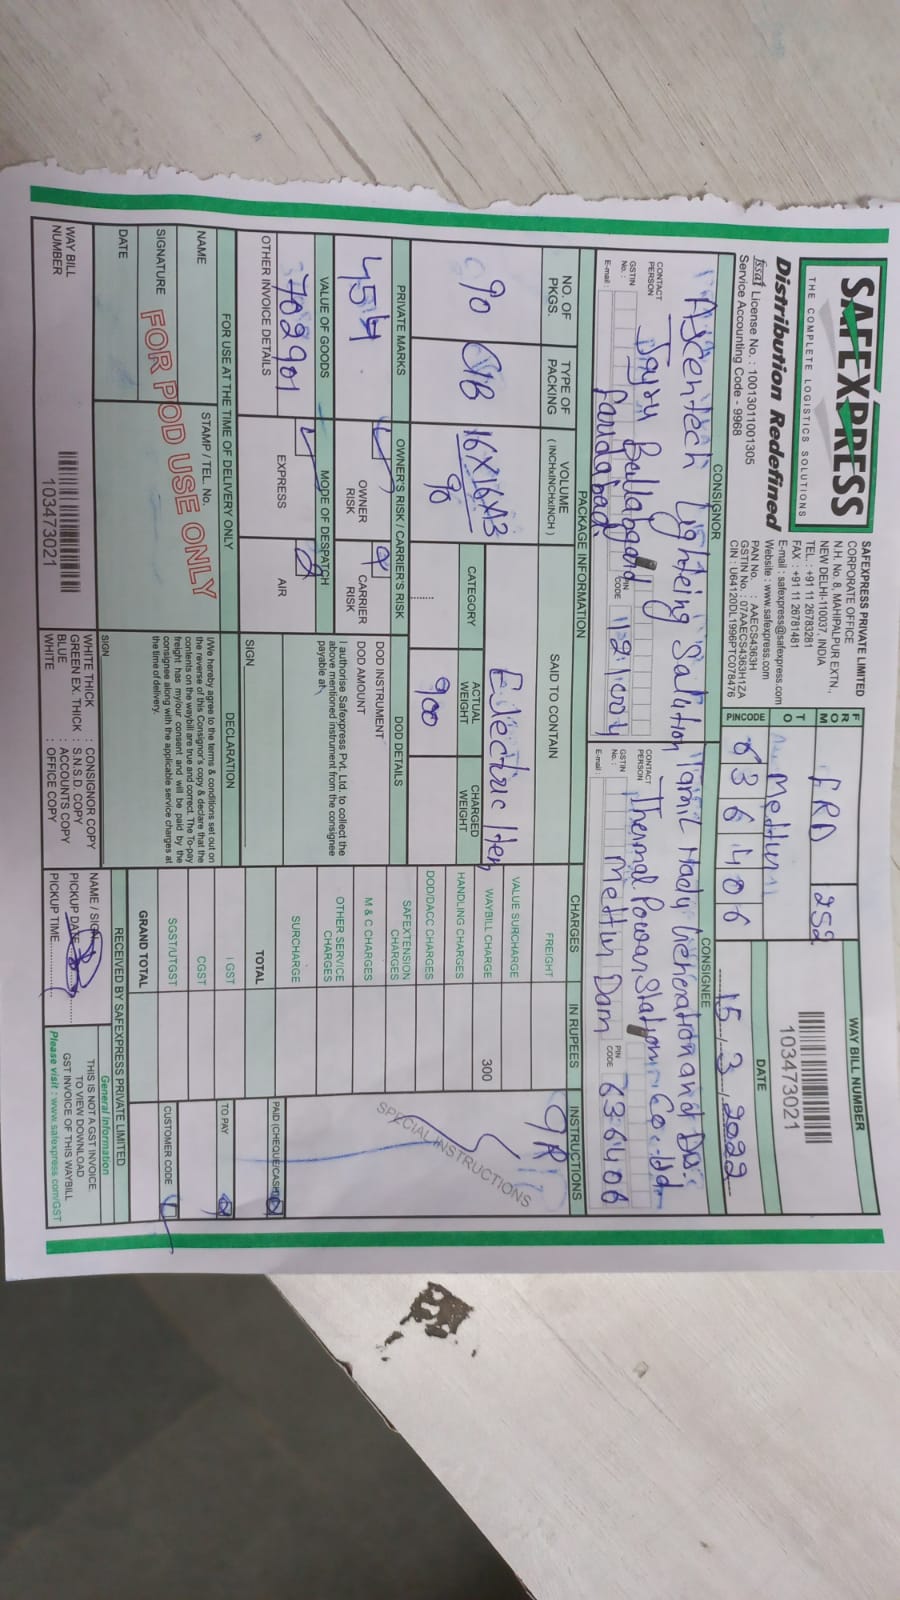 SAFEXPRESS
THE COMPLETE LOGISTICS SOLUTIONS
Distribution Redefined
fssai License No. : 10013011001305
Service Accounting Code - 9968
SAFEXPRESS PRIVATE LIMITED
CORPORATE OFFICE
N.H. No. 8, MAHIPALPUR EXTN.,
NEW DELHI-110037, INDIA
TEL. : +91 11 26783281
FAX : +91 11 26781481
E-mail : safexpress@safexpress.com
Website : www.safexpress.com
PAN No. : AAECS4363H
GSTIN No. : 07AAECS4363H1ZA
CIN : U64120DL1996PTC078476
FROM FRD 252
TO Mettur
PINCODE 636406
WAY BILL NUMBER
103473021
DATE
15 3 2022
CONSIGNOR
Ascentech Lighteing Salution
Ballabgard
CONTACT PERSON
GSTIN No. :
E-mail :
PIN CODE 121004
CONSIGNEE
Tamil Nadu Generation and
Thermal Powar Station
Mettur Dam
CONTACT PERSON
GSTIN No. :
E-mail :
PIN CODE 636406
PACKAGE INFORMATION
NO. OF PKGS.
TYPE OF PACKING
VOLUME (INCHxINCHxINCH)
SAID TO CONTAIN
90
16X16X13
90
Eilectric Item
CATEGORY
ACTUAL WEIGHT
CHARGED WEIGHT
900
CHARGES
IN RUPEES
INSTRUCTIONS
FREIGHT
VALUE SURCHARGE
WAYBILL CHARGE 300
HANDLING CHARGES
DOD/DACC CHARGES
SAFEXTENSION CHARGES
M & C CHARGES
OTHER SERVICE CHARGES
SURCHARGE
TOTAL
I GST
CGST
SGST/UTGST
GRAND TOTAL
SPECIAL INSTRUCTIONS
PAID (CHEQUE/CASH)
TO PAY
CUSTOMER CODE
PRIVATE MARKS
OWNER'S RISK / CARRIER'S RISK
DOD DETAILS
OWNER RISK
CARRIER RISK
DOD INSTRUMENT
DOD AMOUNT
I authorise Safexpress Pvt. Ltd. to collect the
above mentioned instrument from the consignee
payable at
VALUE OF GOODS
MODE OF DESPATCH
702901
EXPRESS
AIR
OTHER INVOICE DETAILS
SIGN
FOR USE AT THE TIME OF DELIVERY ONLY
DECLARATION
NAME
STAMP / TEL. No.
SIGNATURE
DATE
FOR POD USE ONLY
I/We hereby agree to the terms & conditions set out on
the reverse of this Consignor's copy & declare that the
contents on the waybill are true and correct. The To-pay
freight has my/our consent and will be paid by the
consignee along with the applicable service charges at
the time of delivery.
SIGN
RECEIVED BY SAFEXPRESS PRIVATE LIMITED
WAY BILL NUMBER
103473021
WHITE THICK : CONSIGNOR COPY
GREEN EX. THICK : S.N.S.D. COPY
BLUE : ACCOUNTS COPY
WHITE : OFFICE COPY
NAME / SIGN
PICKUP DATE
PICKUP TIME
General Information
THIS IS NOT A GST INVOICE.
TO VIEW DOWNLOAD
GST INVOICE OF THIS WAYBILL
Please visit : www.safexpress.com/GST